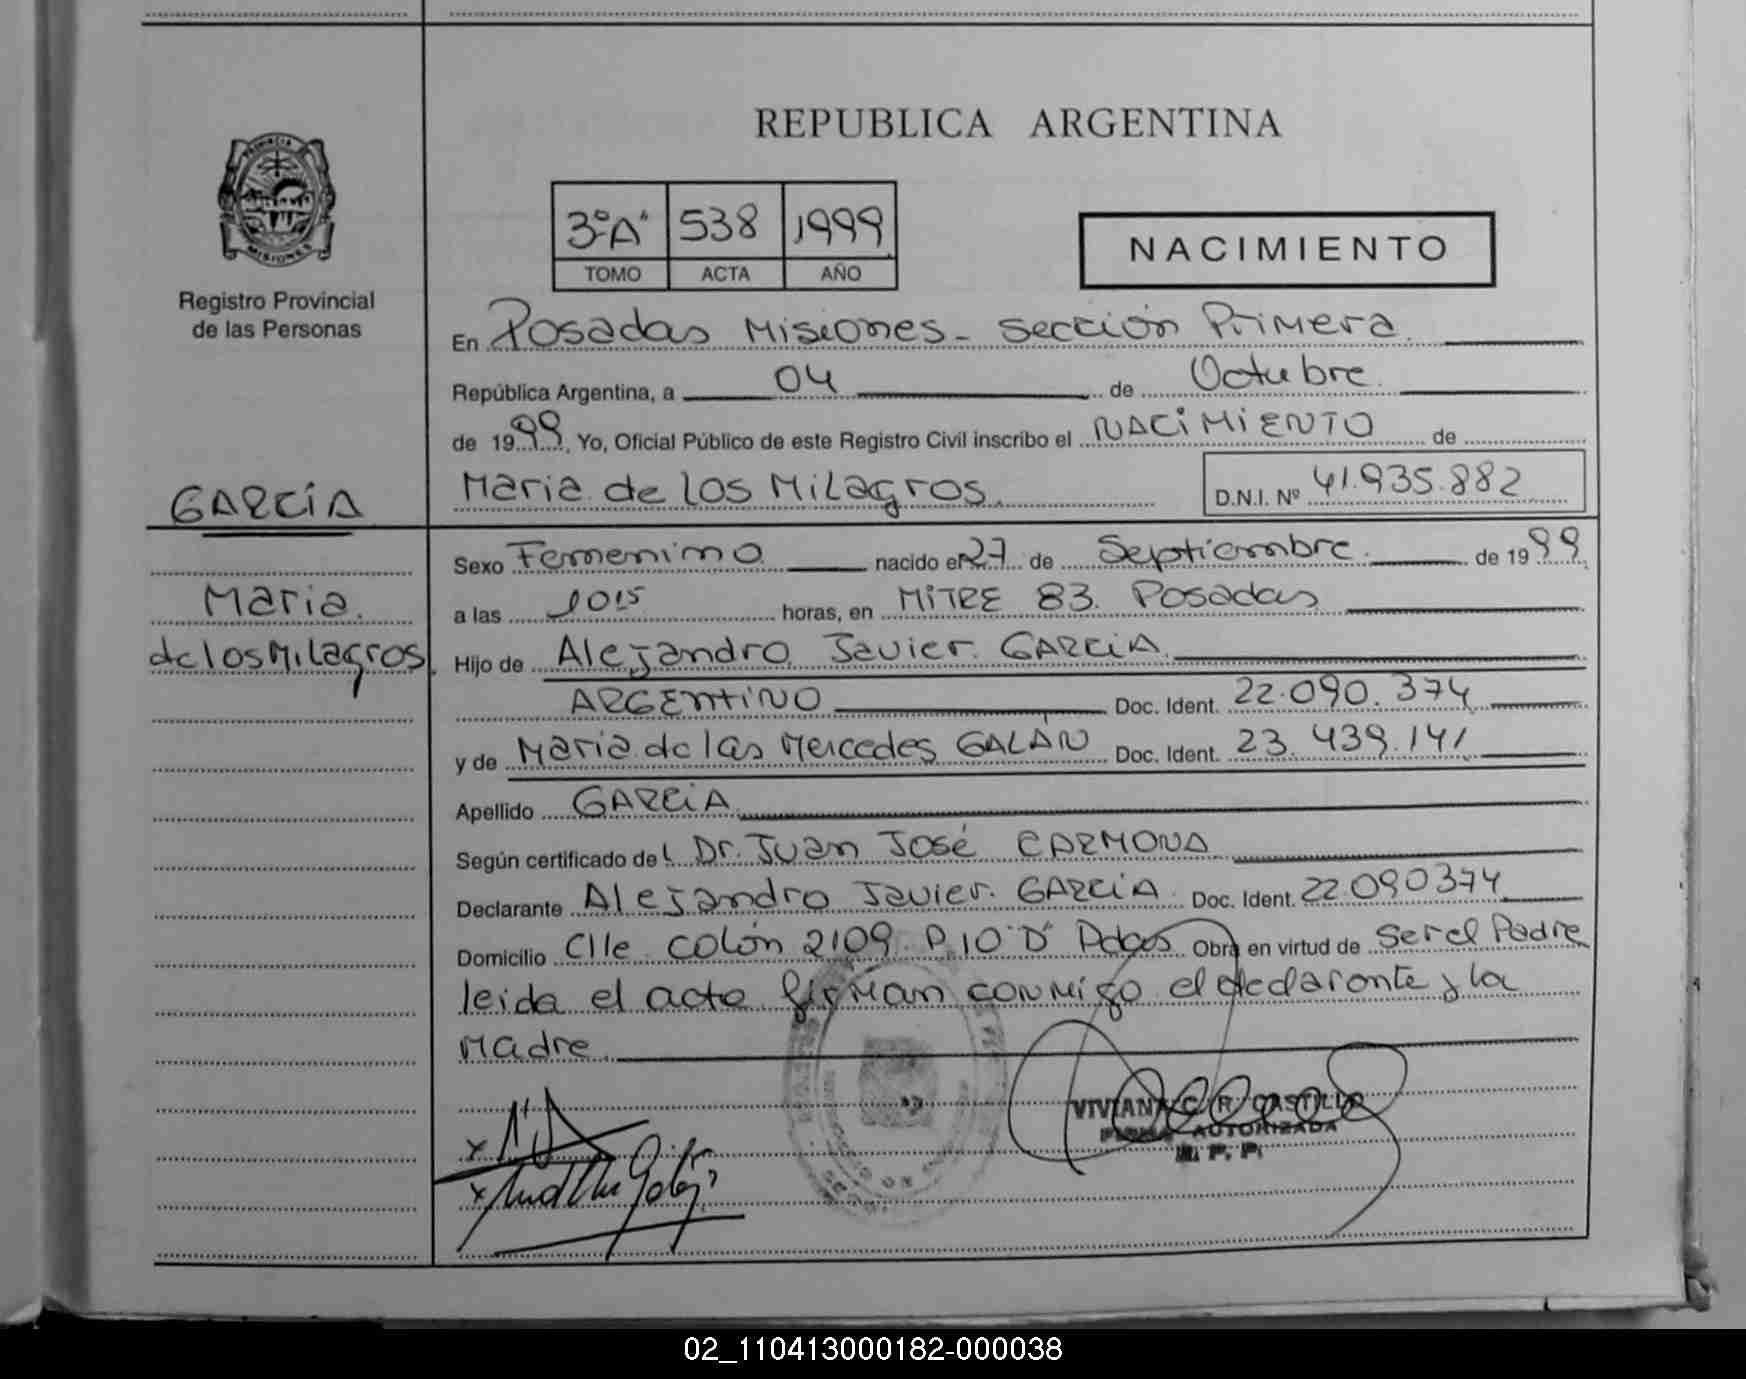 REPUBLICA ARGENTINA
PROVINCIA
MISIONES
Registro Provincial
de las Personas
3º"A" 538 1999
TOMO ACTA AÑO
NACIMIENTO
En Posadas Misiones - Sección Primera
República Argentina, a 04 de Octubre
de 1999, Yo, Oficial Público de este Registro Civil inscribo el NACIMIENTO de
Maria de los Milagros. D.N.I. Nº 41.935.882
GARCÍA
Maria
de los Milagros.
Sexo Femenino nacido el 27 de Septiembre de 1999
a las 1015 horas, en MITRE 83. Posadas
Hijo de Alejandro Javier GARCIA
ARGENTINO Doc. Ident. 22.090.374
y de Maria de las Mercedes GALÁN Doc. Ident. 23.439.141
Apellido GARCIA
Según certificado del Dr. Juan José CARMONA
Declarante Alejandro Javier GARCIA Doc. Ident. 22090374
Domicilio Clle Colón 2109 P 10 "D" Pdas Obra en virtud de ser el Padre
leida el acta firman conmigo el declarante y la
Madre
VIVIANA C. R. CASTILLO
FIRMA AUTORIZADA
R. P. P.
02_110413000182-000038